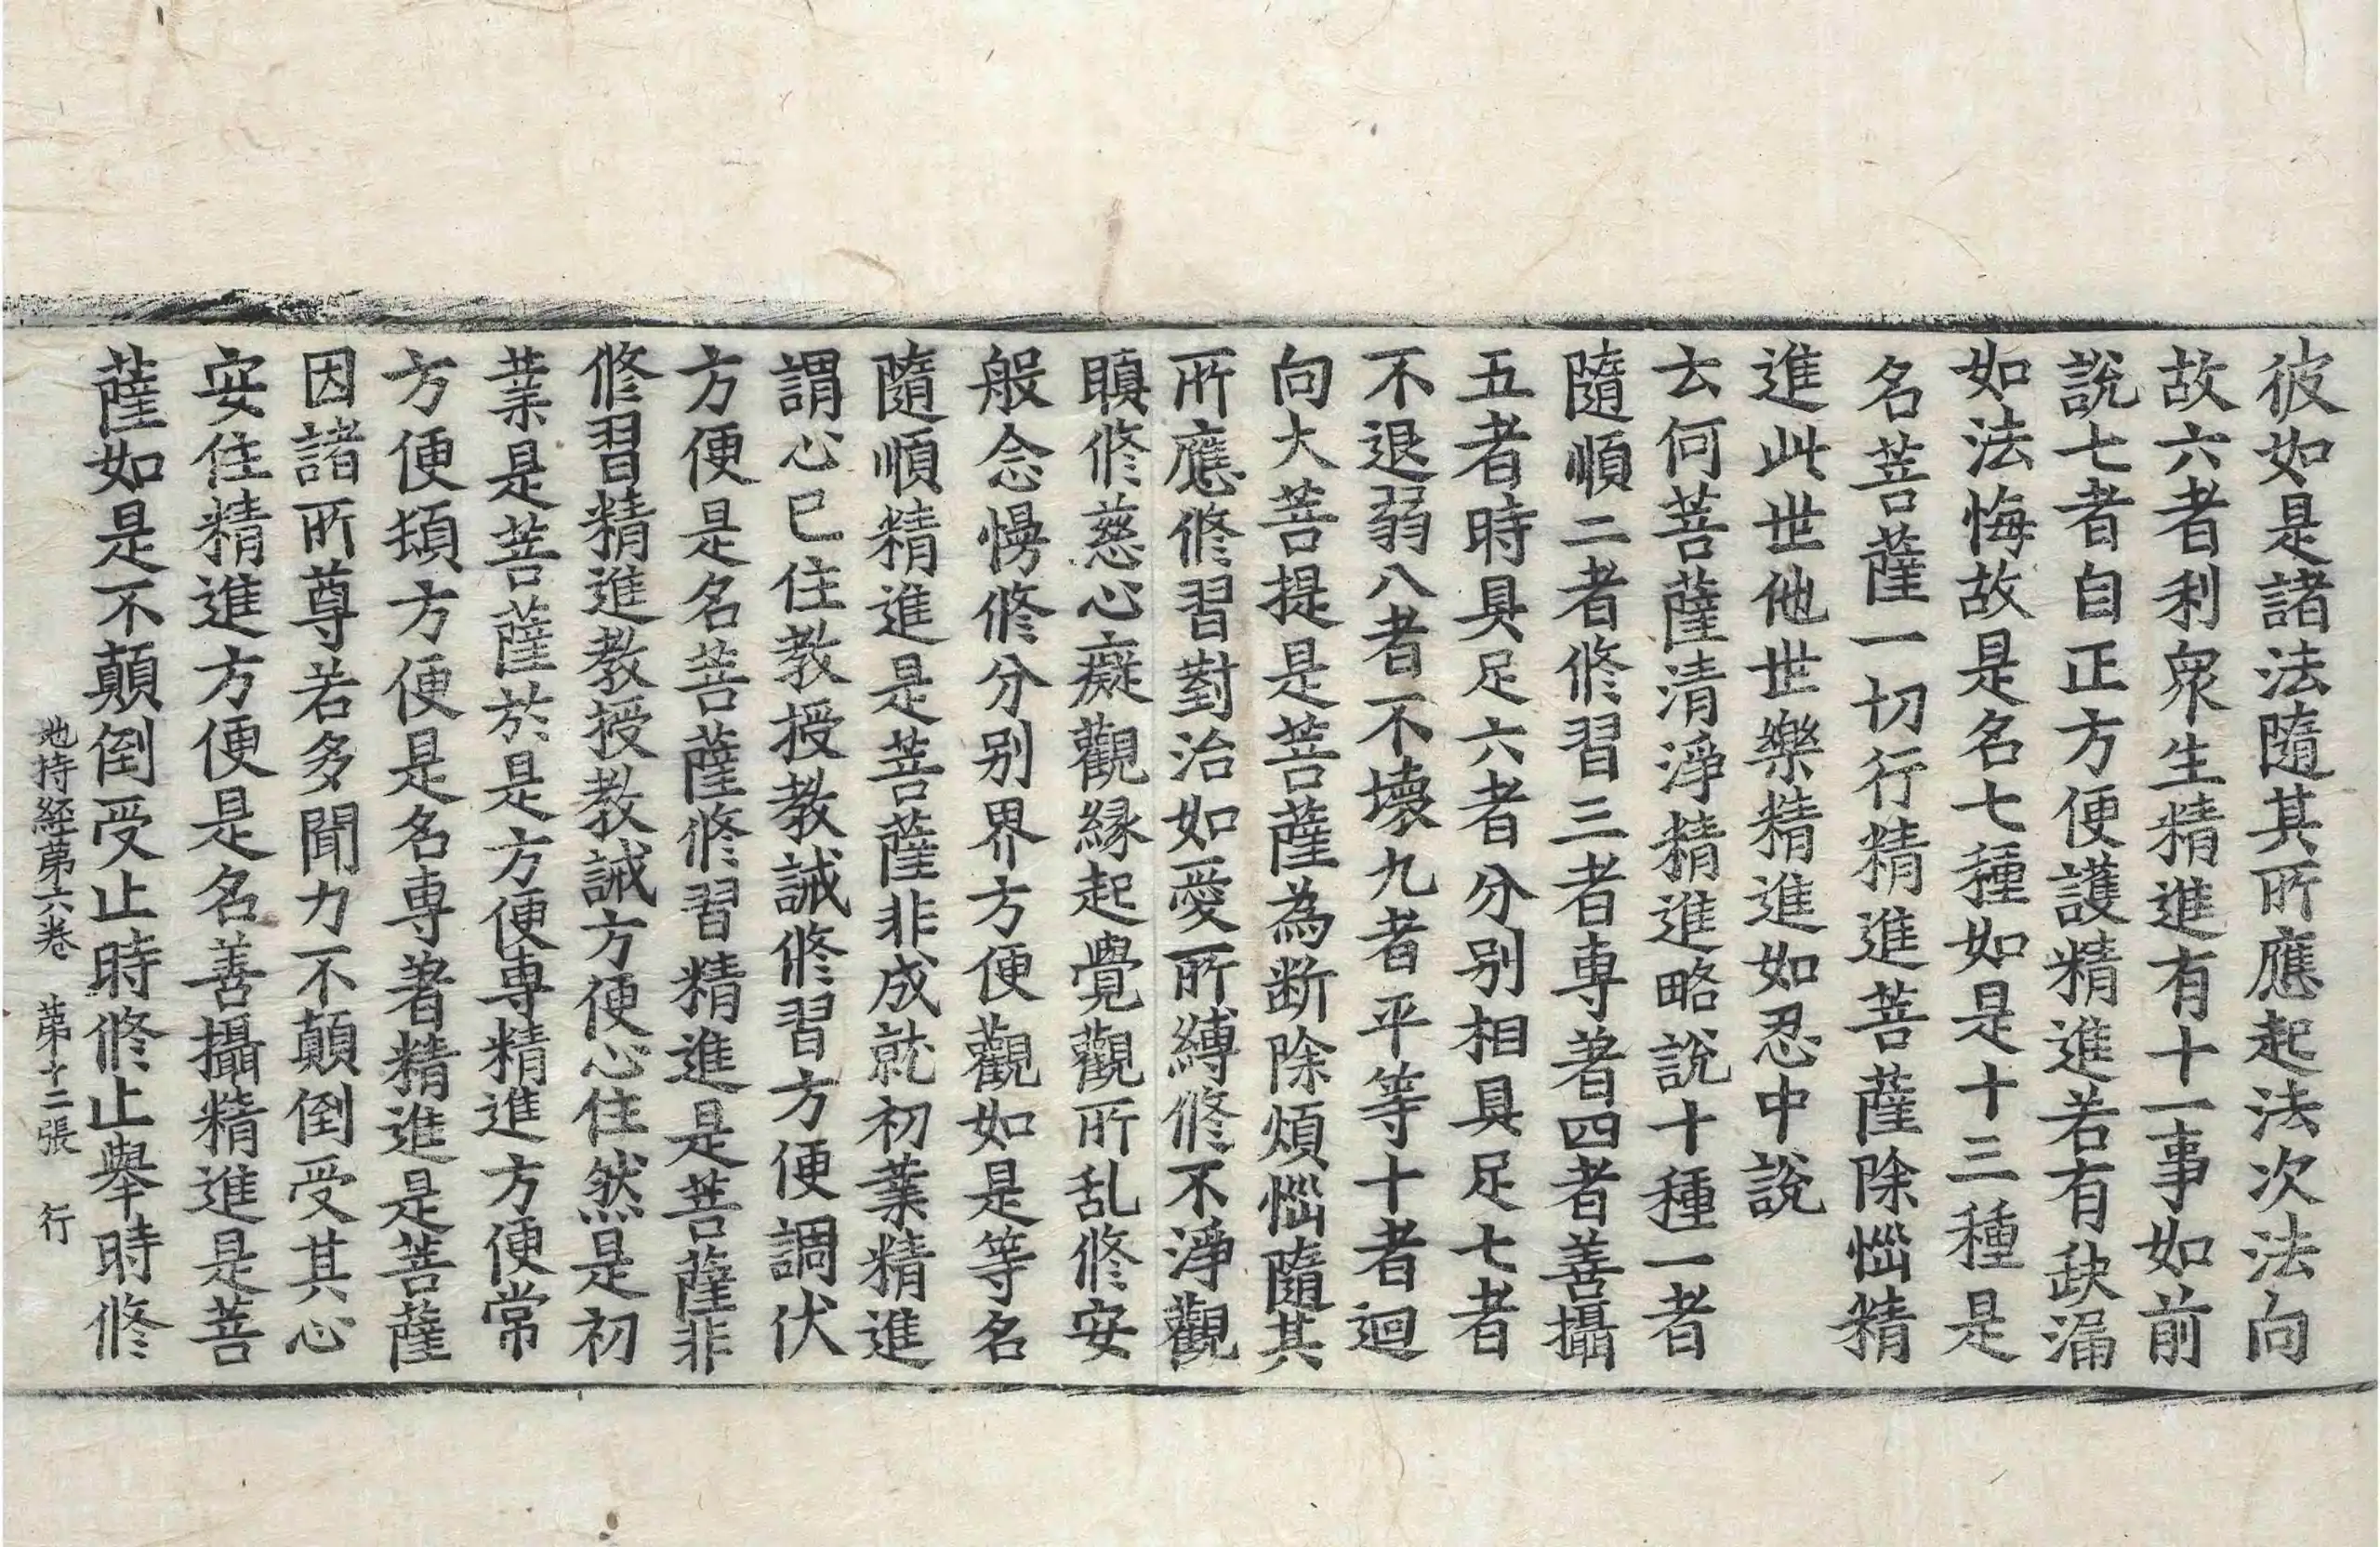 彼如是諸法隨其所應起法次法向
故六者利衆生精進有十一事如前
說七者自正方便護精進若有缺漏
如法悔故是名七種如是十三種是
名菩薩一切行精進菩薩除惱精
進此世他世樂精進如忍中說
云何菩薩清淨精進略說十種一者
隨順二者修習三者專著四者善攝
五者時具足六者分別相具足七者
不退弱八者不壞九者平等十者迴
向大菩提是菩薩為斷除煩惱隨其
所應修習對治如愛所縛修不淨觀
瞋修慈心癡觀緣起覺觀所乱修安
般念慢修分別界方便觀如是等名
隨順精進是菩薩非成就初業精進
謂心已住教授教誡修習方便調伏
方便是名菩薩修習精進是菩薩非
修習精進教授教誡方便心住然是初
業是菩薩於是方便專精進方便常
方便頓方便是名專著精進是菩薩
因諸所尊若多聞力不顛倒受其心
安住精進方便是名善攝精進是菩
薩如是不顛倒受止時修止舉時修
地持經第六卷　第十二張　行